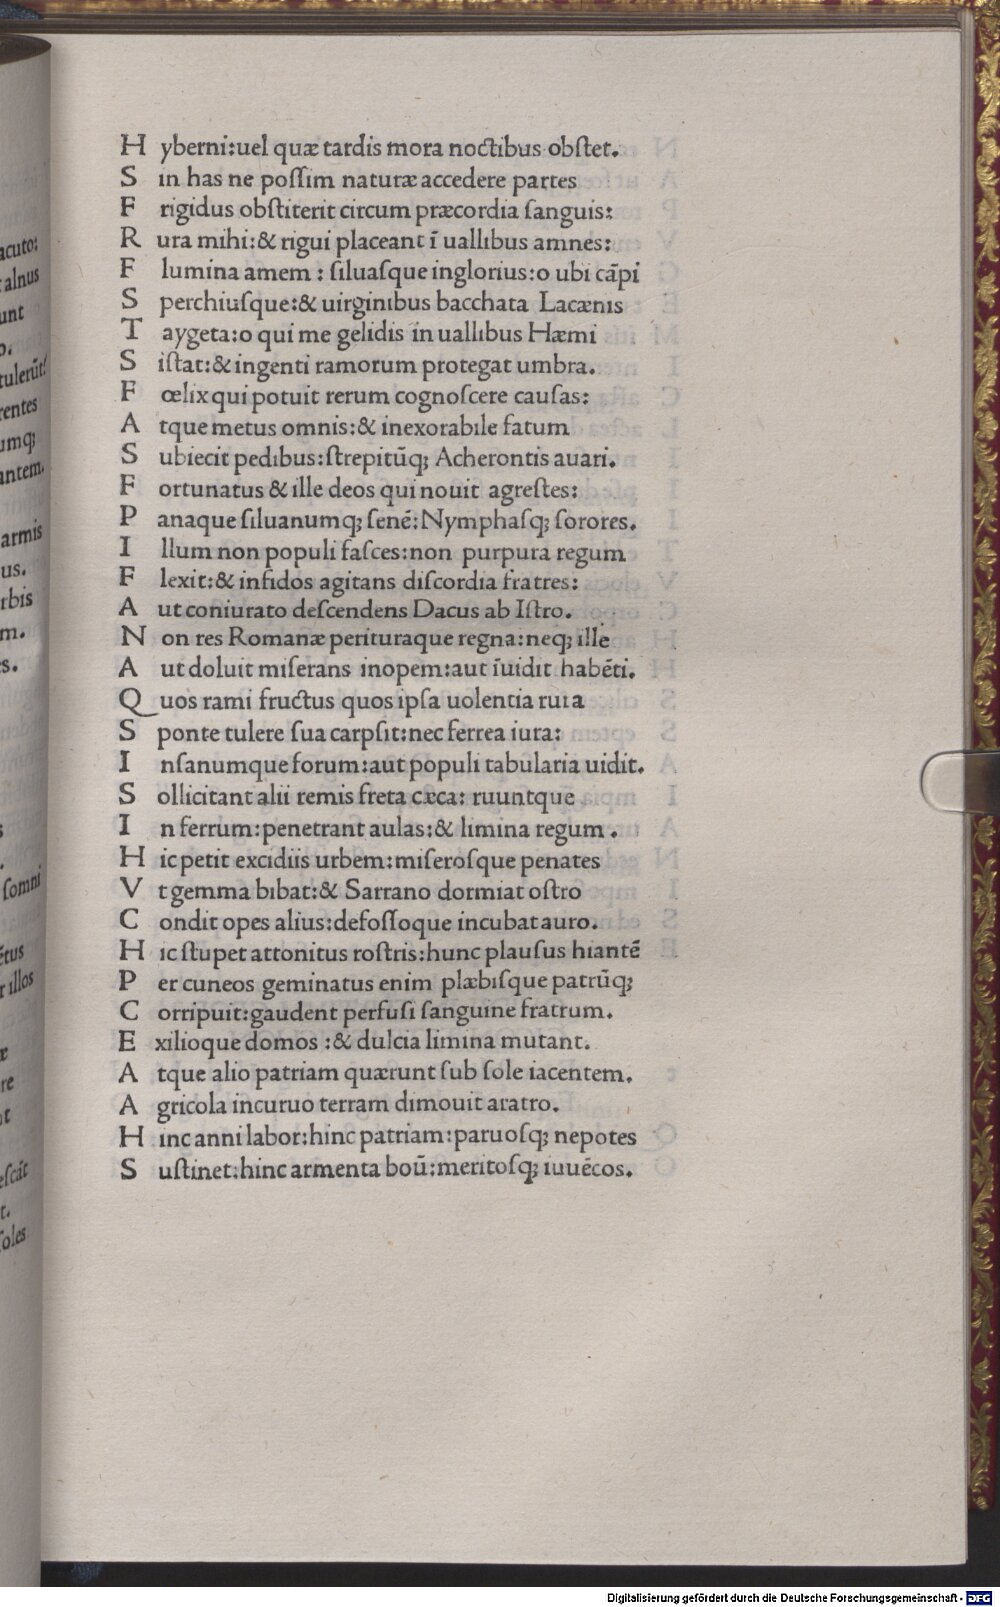 H yberni:uel quæ tardis mora noctibus obſtet.
S in has ne poſſim naturæ accedere partes
F rigidus obſtiterit circum præcordia ſanguis:
R ura mihi:& rigui placeant ī uallibus amnes:
F lumina amem : ſiluaſque inglorius:o ubi cāpi
S perchiuſque:& uirginibus bacchata Lacænis
T aygeta:o qui me gelidis in uallibus Hæmi
S iſtat:& ingenti ramorum protegat umbra.
F œlix qui potuit rerum cognoſcere cauſas:
A tque metus omnis:& inexorabile fatum
S ubiecit pedibus:ſtrepitūq; Acherontis auari.
F ortunatus & ille deos qui nouit agreſtes:
P anaque ſiluanumq; ſenē:Nymphaſq; ſorores.
I llum non populi faſces:non purpura regum
F lexit:& infidos agitans diſcordia fratres:
A ut coniurato deſcendens Dacus ab Iſtro.
N on res Romanæ perituraque regna:neq; ille
A ut doluit miſerans inopem:aut īuidit habēti.
Q uos rami fructus quos ipſa uolentia rura
S ponte tulere ſua carpſit:nec ferrea iura:
I nſanumque forum:aut populi tabularia uidit.
S ollicitant alii remis freta cæca: ruuntque
I n ferrum:penetrant aulas:& limina regum .
H ic petit excidiis urbem:miſeroſque penates
V t gemma bibat:& Sarrano dormiat oſtro
C ondit opes alius:defoſſoque incubat auro.
H ic ſtupet attonitus roſtris:hunc plauſus hiantē
P er cuneos geminatus enim plæbiſque patrūq;
C orripuit:gaudent perfuſi ſanguine fratrum.
E xilioque domos :& dulcia limina mutant.
A tque alio patriam quærunt ſub ſole iacentem.
A gricola incuruo terram dimouit aratro.
H inc anni labor:hinc patriam:paruoſq; nepotes
S uſtinet:hinc armenta boū:meritoſq; iuuēcos.
acuto:
alnus
unt
tulerūt!
rentes
umq;
antem.
armis
us.
rbis
m.
s.
ſomni
ētus
r illos
re
eſcāt
t.
ſoles
Digitalisierung gefördert durch die Deutsche Forschungsgemeinschaft - DFG